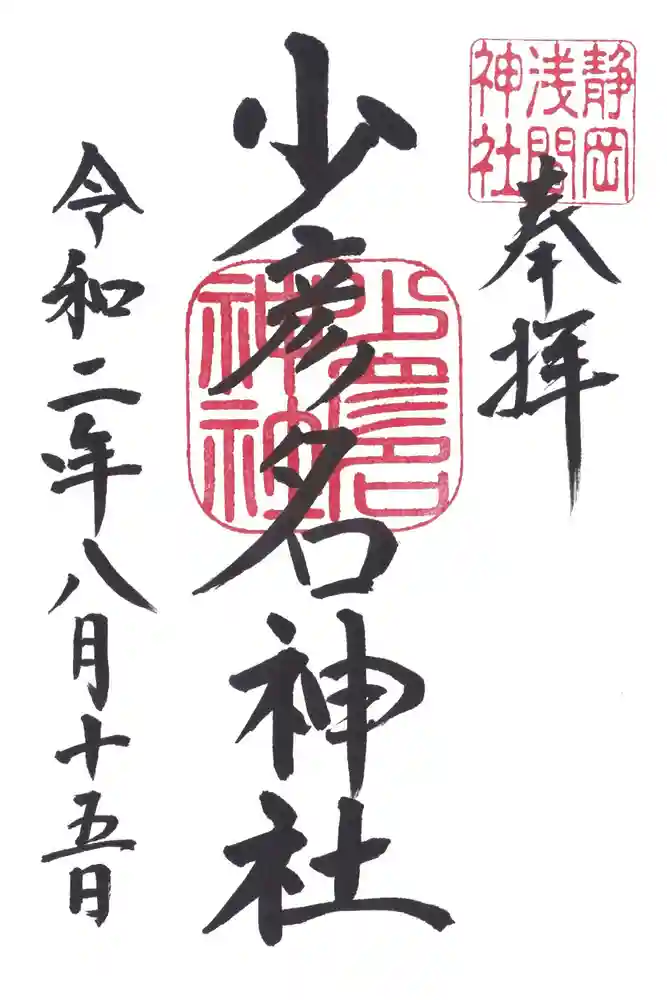 奉拝
静岡
浅間
神社
少彦名神社
少彦名
神社
令和二年八月十五日